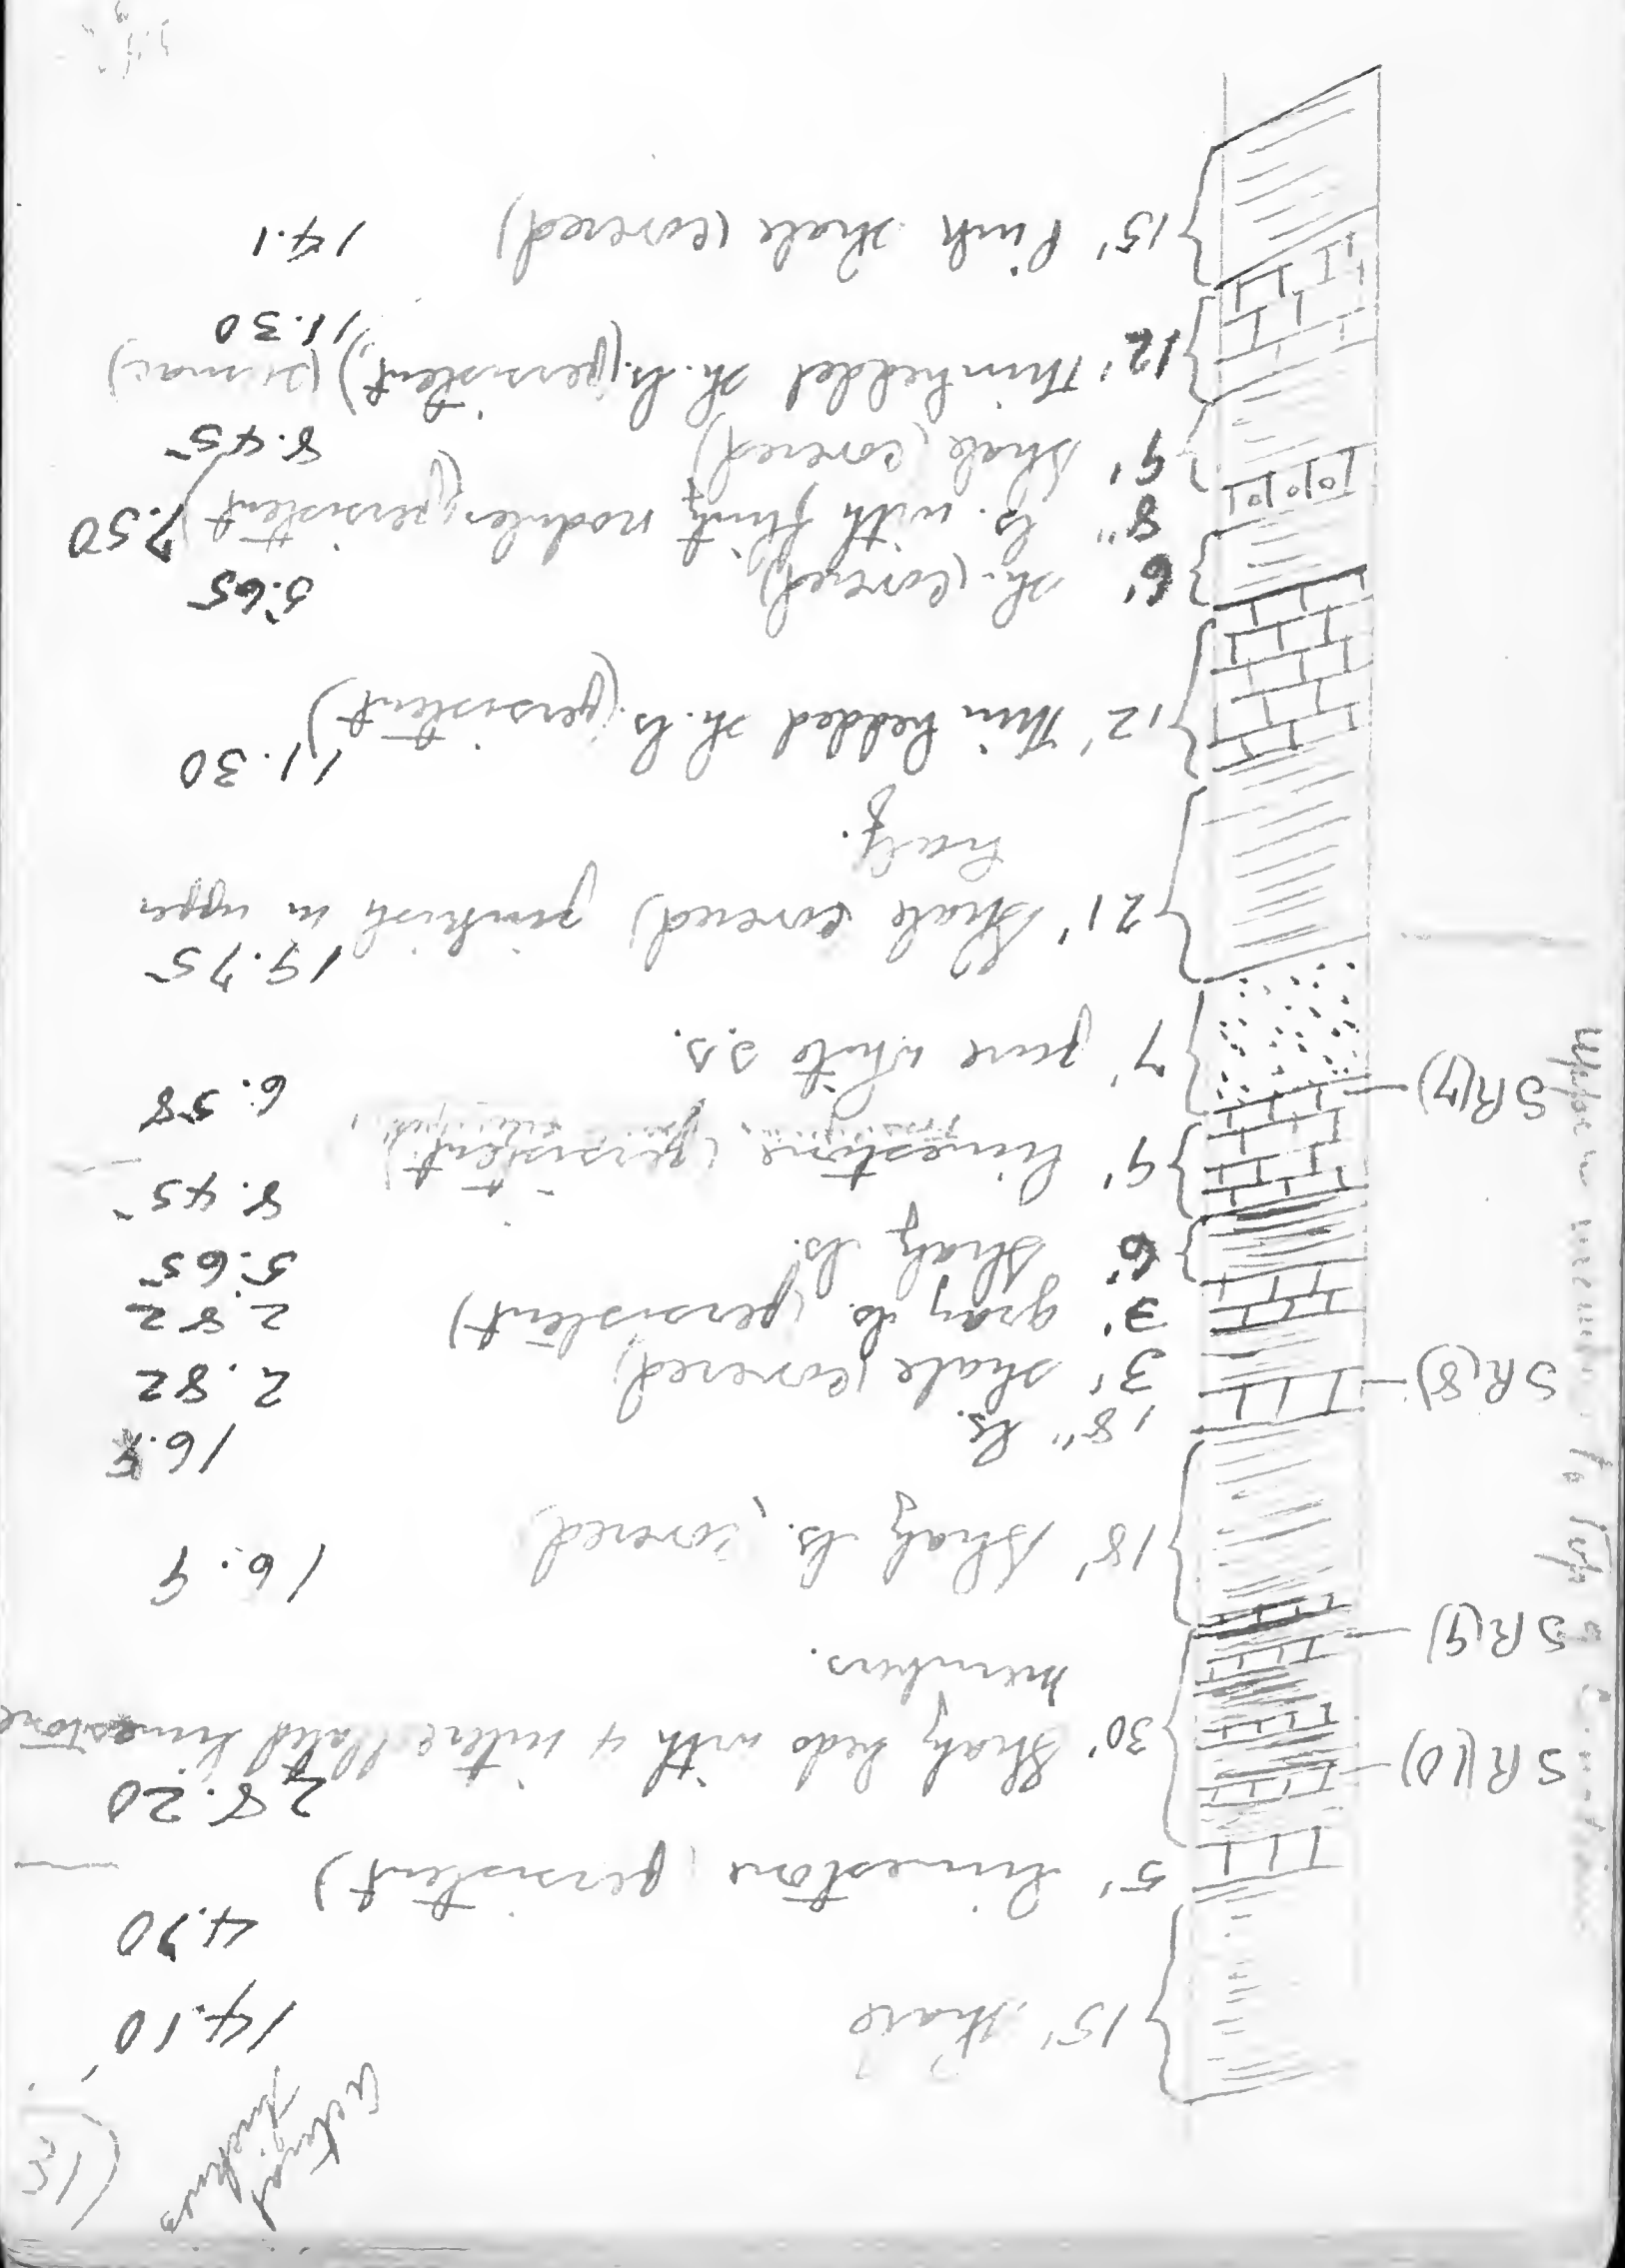 (15)
Actual
thickness
15' shale 14.10
5' limestone (persistent) 4.70
SR(10) 30' Shaly beds with 4 intercalated limestone 28.20
members.
SR(9)
18' shaly ls. (covered) 16.9
18" ls.
SR(8) 3' shale (covered) 2.82
3' gray ls. (persistent) 2.82
6' shaly ls. 5.65
9' limestone (persistent) 8.45
SR(7) 7' pure white s.s. 6.58
21' Shale covered) pinkish in upper 19.75
half.
12' Thin bedded sh. ls. (persistent) 11.30
6' sh. (covered) 5.65
8" ls. with flinty nodules (persistent) 7.50
9' shale (covered) 8.45
12' Thin bedded sh. ls. (persistent) 11.30
15' Pink shale (covered) 14.1
Upper to Top of